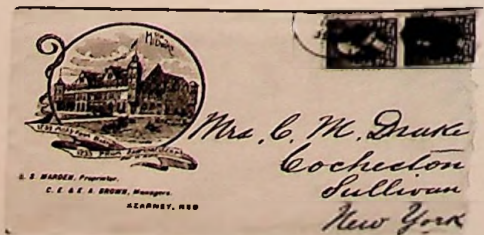 U. S. MARDEN, Proprietor.
C. E. & E. A. BROWN, Managers.
KEARNEY, NEB
Mrs. C. M. Drake
Cocheston
Sullivan
New York